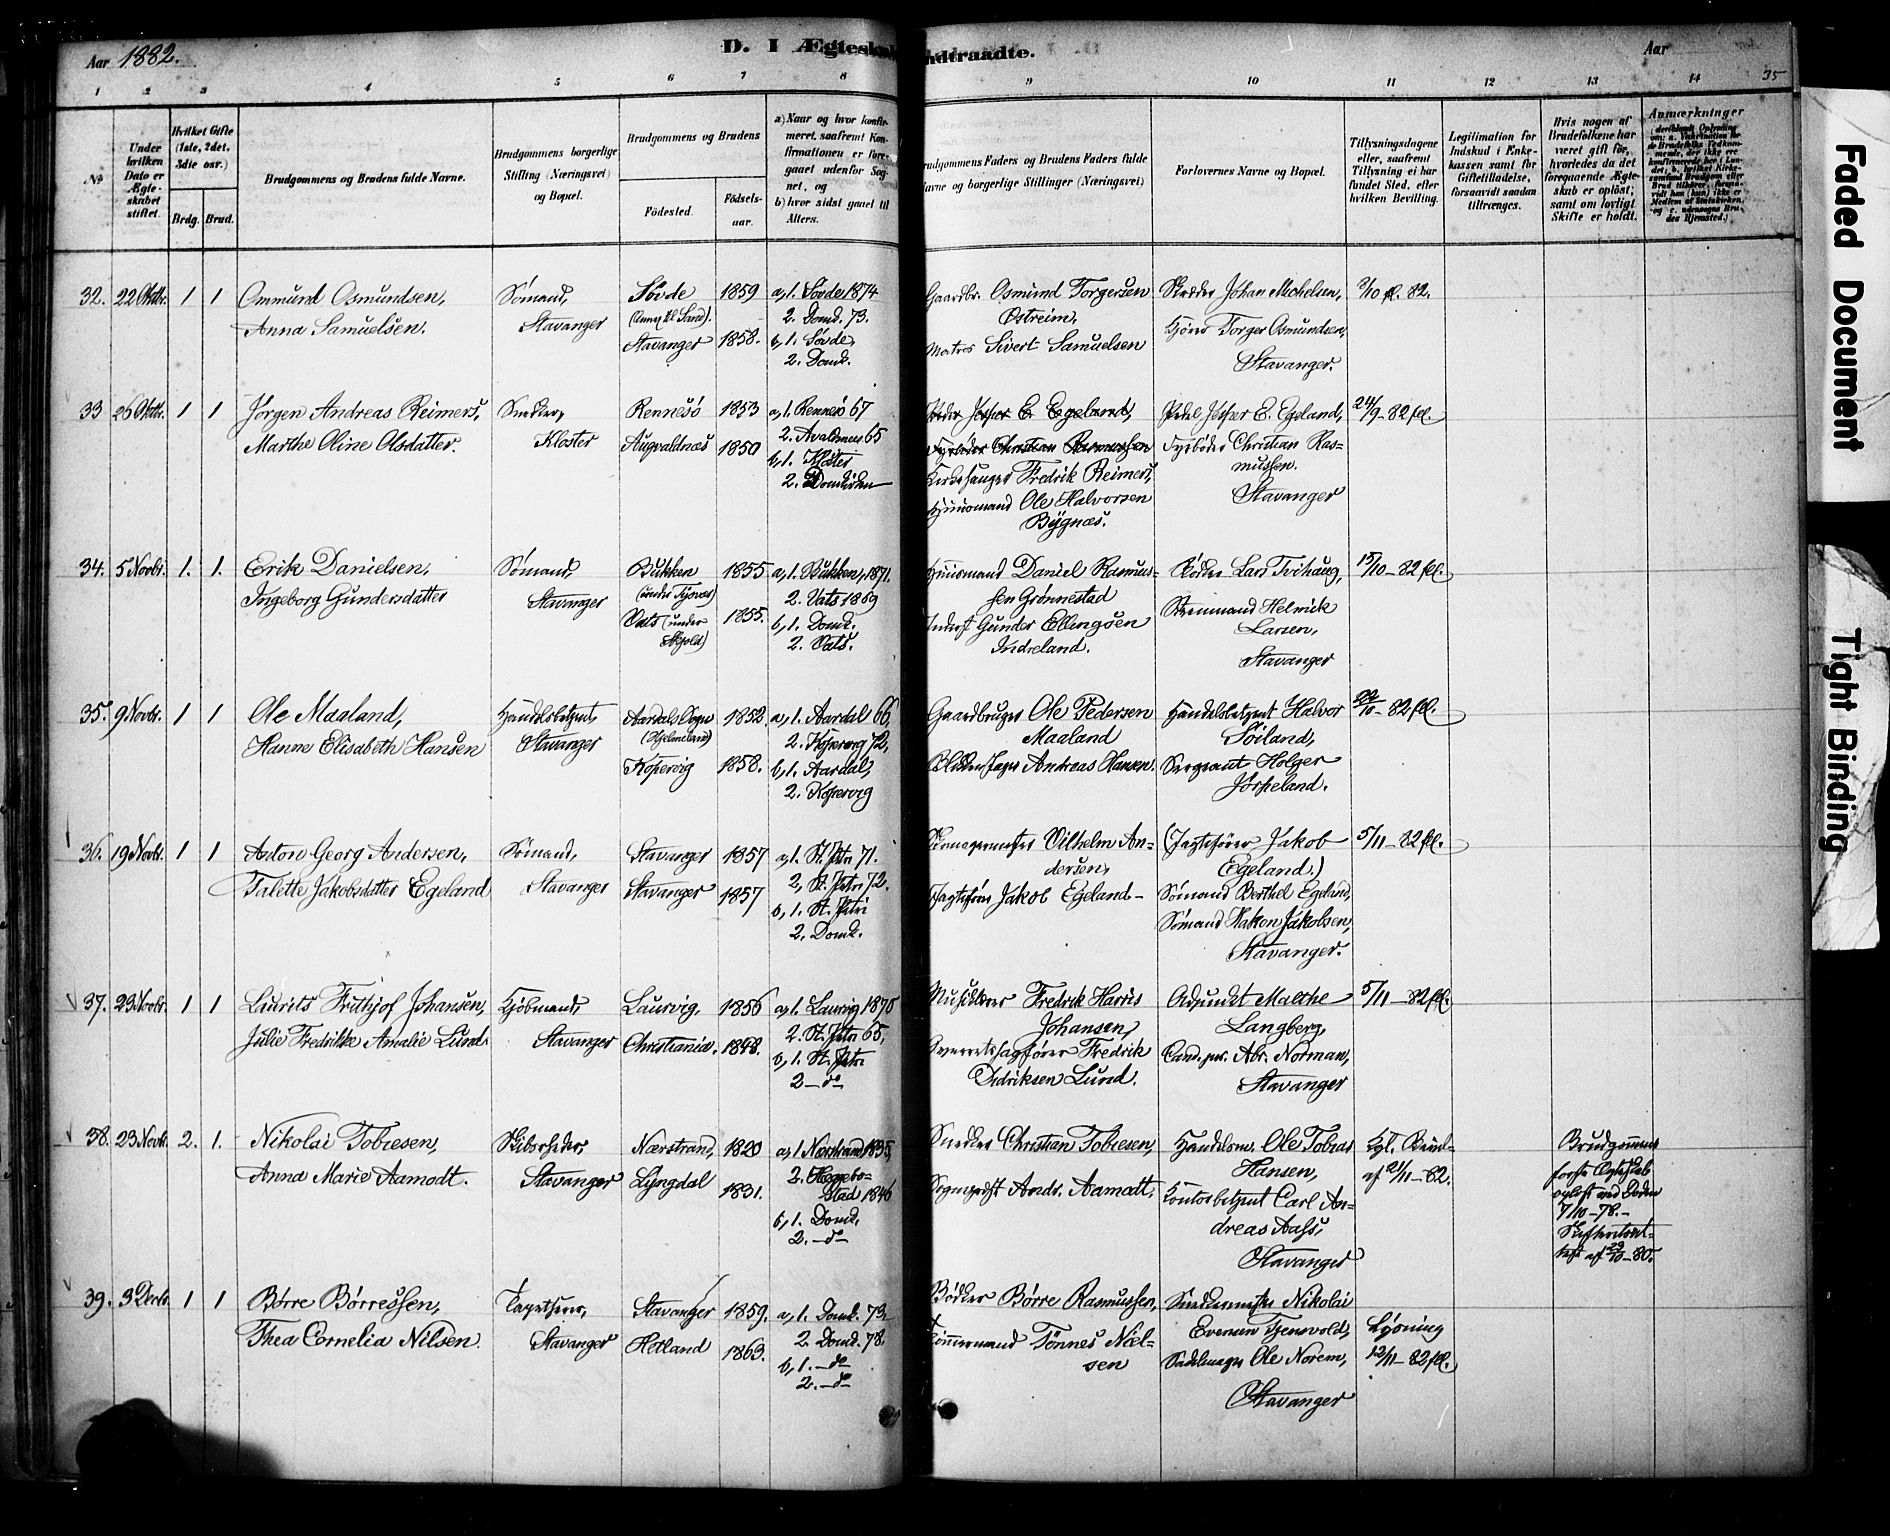 Aar 1882.
D. I Ægteska
ndtraadte.
Aar
35
1 2 3 4 5 6 7 8 9 10 11 12 13 14
No
Under hvilken Dato er Ægteskabet stiftet.
Hvilket Gifte (1ste, 2det, 3die osv.)
Brdg. Brud.
Brudgommens og Brudens fulde Navne.
Brudgommens borgerlige Stilling (Næringsvei) og Bopæl.
Brudgommens og Brudens
Födested. Födselsaar.
a) Naar og hvor konfirmeret, saafremt Konfirmationen er foregaaet udenfor Sognet, og
b) hvor sidst gaaet til Alters.
rudgommens Faders og Brudens Faders fulde
avne og borgerlige Stillinger (Næringsvei)
Forlovernes Navne og Bopæl.
Tillysningsdagene eller, saafremt Tillysning ei har fundet Sted, efter hvilken Bevilling.
Legitimation for Indskud i Enkekassen samt for Giftetilladelse, forsaavidt saadan tiltrænges.
Hvis nogen af Brudefolkene har været gift för, hvorledes da det foregaaende Ægteskab er oplöst; samt om lovligt Skifte er holdt.
Anmærkninger
32. 22 Oktbr. 1 1 Ommund Osmundsen, Sømand, Søvde 1859 a, 1. Søvde 1874 Gaardbr. Osmund Torgersen Skræder Johan Michelsen,
(Annex til Sand). 2. Domk. 73. Østreim,
Anna Samuelsen. Stavanger Stavanger 1858. b, 1. Søvde, Matros Sivert Samuelsen Torger Osmundsen,
2. Domk. Stavanger.
33 26 Oktbr. 1 1 Jørgen Andreas Reimers, Snedker, Rennesö 1853 a, 1. Rennesö 67 Jesper E. Egeland, Pedel Jesper E. Egeland, 24/9-82 fl.
Marthe Oline Olsdatter. Kloster Augvaldnæs 1850 2. Avaldsnes 65 Fyrbøder Christian Rasmussen Fyrbøder Christian Rasmussen.
b, 1. Kloster Kirkesanger Fredrik Reimers,
2. Domkirken Huusmand Ole Halvorsen Stavanger
Bygnæs.
34. 5 Novbr. 1. 1. Erik Danielsen, Sømand, Bukken 1855 a, 1. Bukken, 1871. Huusmand Daniel Rasmus- Lars Tvihaug, 15/10-82 fl.
(under Tysvær) 2. Vats 1869 sen Grønnestad
Ingeborg Gundersdatter Stavanger Vats (under 1855. b, 1. Domk. Inderst Gunder Ellingsen Helmick
Skjold) 2. Vats. Indreland. Larsen,
Stavanger
35. 9 Novbr. 1 1 Ole Maaland, Handelsbetjent, Aardals Sogn 1852. a, 1. Aardal 66, Gaardbruger Ole Pedersen Handelsbetjent Halvor 22/10-82 fl.
(Hjelmeland) 2. Kopervig 72, Maaland Søiland,
Hanne Elisabeth Hansen Stavanger Kopervig 1858. b, 1. Aardal, Andreas Hansen. Sergeant Holger
2. Kopervig Jørpeland.
36. 19 Novbr. 1 1 Anton Georg Andersen, Sømand, Stavanger 1857 a, 1. St. Petri 71. Vilhelm An- (Jagtefører Jakob 5/11-82 fl.
2, St. Petri 72. dersen, Egeland.)
Talette Jakobsdatter Egeland Stavanger Stavanger 1857 b, 1. St. Petri Jagtefører Jakob Egeland- Sømand Berthel Egeland,
2. Domk. Sømand Hakon Jakobsen,
Stavanger.
37. 23 Novbr. 1 1 Laurits Frithjof Johansen, Kjøbmand, Laurvig, 1856 a, 1. Laurvig 1870 Fredrik Harris Adjunkt Malthe 5/11-82 fl.
2. St. Petri 65, Johansen, Langberg,
Julie Fredrikke Amalie Lund. Stavanger Christiania. 1848. b, 1. St. Petri Overretssagfører Fredrik Cand. jur. Abr. Norman,
2 - do - Didriksen Lund. Stavanger
38. 23 Novbr. 2. 1. Nikolai Tobiesen, Skibsreder, Nærstrand, 1820 a, 1. Nærstrand 1835, Snedker Christian Tobiesen, Handelsm. Ole Tobias Kgl. Bevil- Brudgommens
2. Heggebo- Hansen, af 21/11-82. første Ægteskab
Anna Marie Aamodt. Stavanger Lyngdal 1831. stad 1846 Andr. Aamodt. Kontorbetjent Carl An- opløst ved Døden
b, 1. Domk. dreas Aass, 7/10-78.-
2. - do - Stavanger Skifteattest af 29/10-80.
39. 3 Decbr. 1 1 Børre Børressen, Tapetserer, Stavanger 1859. a, 1. Domk. 73, Bødker Børre Rasmussen, Snedkermester Nikolai
2. Domk. 78. Evensen Tjensvold, Lysning
Thea Cornelia Nilsen. Stavanger Hetland 1863. b, 1. - do - Tømmermand Tønnes Niel- Sadelmager Ole Norem, 12/11-82 fl.
2. - do - sen Stavanger
Faded Document
Tight Binding